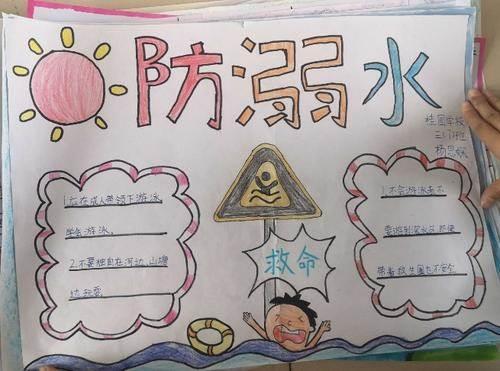 防溺水
桂圆学校
三(1)班
杨思
1.应在成人带领下游泳
学会游泳。
2.不要独自在河边、山塘
边玩耍
救命
1.不会游泳者不
要游到深水区,即使
带着救生圈也不安全